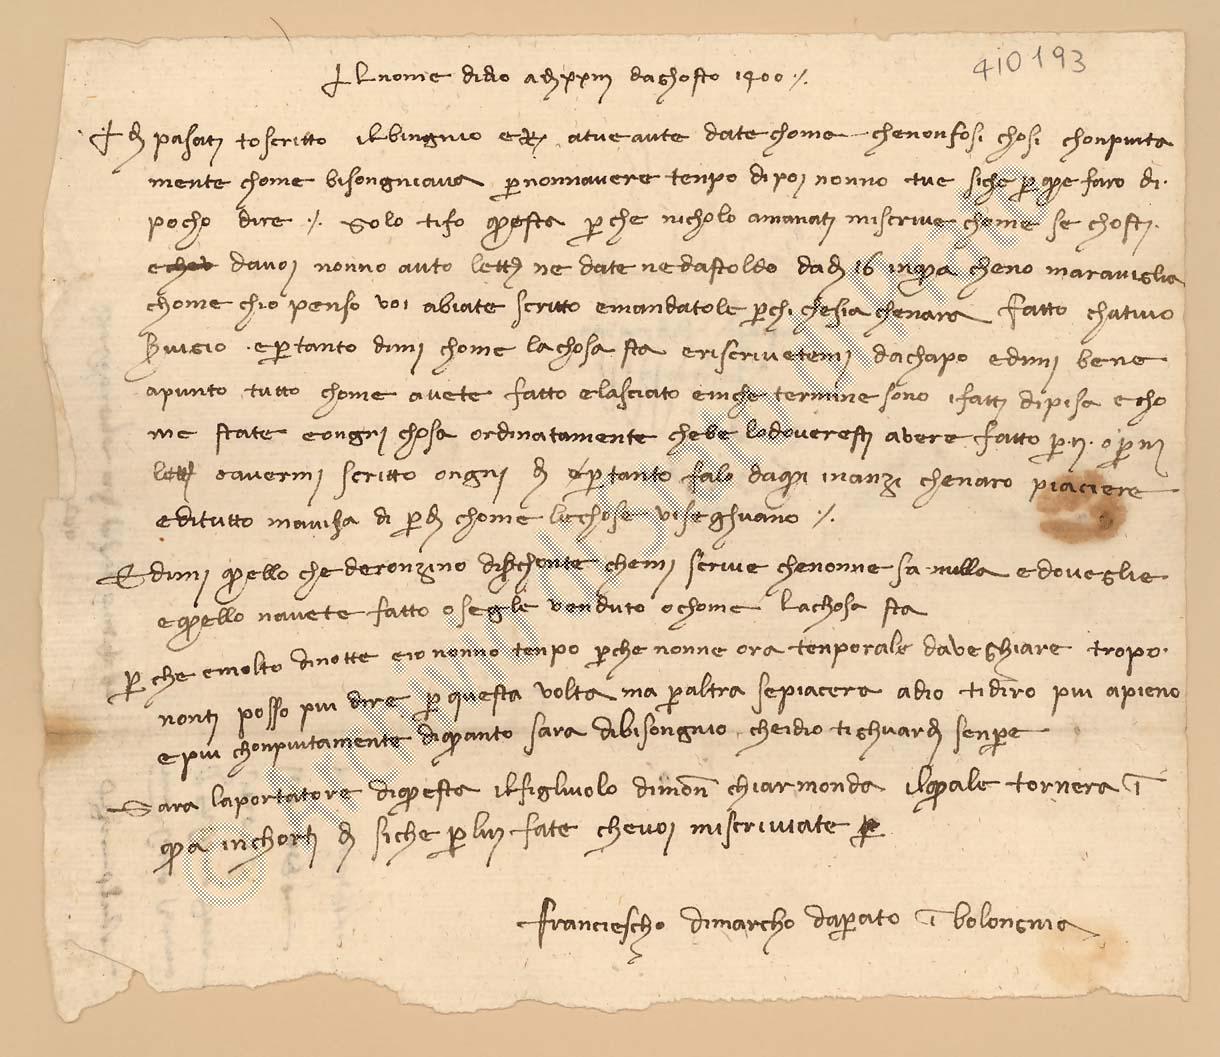 410193
✝ Al nome di dio a dì xxiii d'aghosto 1400 ./.
E dì pasati t'ò scritto il bingnio e r. a tue aute date chome che non fosi chosì chonpiuta
mente chome bisongniava per non n'avere tenpo di poi nonn ò tue sì che per questa farò di
pocho dire ./. Solo ti fo questa perché Nicholò Amanati mi scrive chome se chostì
e chev da voi nonn ò auto lettere né da te né da Stoldo da dì 16 in qua che n'ò maraviglia
chome ch'io penso voi abiate scritto e mandatole per chi che sia che n'arà fatto chativo
servigio e pertanto dimi chome la chosa sta e riscrivetemi da chapo e dimi bene
apunto tutto chome avete fatto e lasciato e in che termine sono i fatti di Pisa e cho
me state e ongni chosa ordinatamente che be' lo doveresti avere fatto per ti. o per mi
lettere e avermi scritto ongni dì e pertanto falo da qui inanzi che n'arò piaciere
e di tutto m'avisa dì per dì chome le chose vi seghuano ./.
E dimi quello che de ronzino di chonte che mi scrive che non ne sa nulla e dov'eglie
e quello n'avete fatto o se gl'è venduto o chome la chosa sta
Perché è molto di notte e io nonn ò tenpo perché nonn è ora tenporale da veghiare tropo.
non ti posso più dire per questa volta ma per altra se piacerà a dio ti dirò più apieno
e più chonpiutamente di quanto sarà di bisongnio che idio ti ghuardi senpre
Sarà l'aportatore di questa il figliuolo di mon Chiarmonda il quale tornerà i
qua in chorti dì sì che per lui fate che voi mi scriviate per
Franciescho di Marcho da Prato i Bolongnia
© Archivio di Stato di Prato